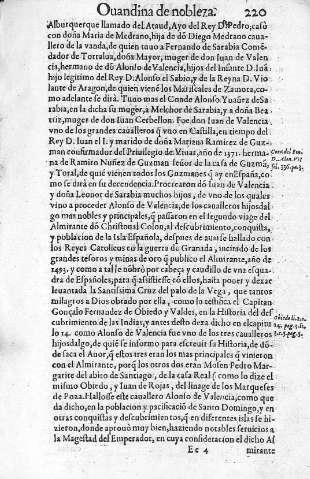 Ouandina de nobleza. 220
Alburquerque llamado del Ataud, Ayo del Rey D. Pedro, casò
con doña Maria de Medrano, hija de dõ Diego Medrano caua-
llero de la vanda, de quien tuuo a Fernando de Sarabia Comẽ-
dador de Torralua, doña Mayor, muger de don Iuan de Valen-
cia, hermano de dõ Alonso de Valencia, hijos del Infante D. Iuã
hijo legitimo del Rey D. Alonso el Sabio, y de la Reyna D. Vio
lante de Aragon, de quien vienẽ los Mariscales de Zamora, co-
mo adelante se dirà. Tuuo mas el Conde Alonso Yuañez de Sa-
rabia, en la dicha su muger, a Melchor de Sarabia, y a doña Bea
triz, muger de don Iuan Cerbellon. Fue don Iuan de Valencia
vno de los grandes caualleros q̃ vuo en Castilla, en tiempo del
Rey D. Iuan el I. y marido de doña Mariana Ramirez de Guz-
man confirmador del Priuilegio de Viuar, año de 1371. herma-
na de Ramiro Nuñez de Guzman señor de la casa de Guzman
y Toral, de quiẽ vienen todos los Guzmanes q̃ ay en España, co-
mo se dirà en su decendencia. Procrearon dõ Iuan de Valencia
y doña Leonor de Sarabia muchos hijos, de vno de los quales
vino a proceder Alonso de Valencia, de los caualleros hijosdal-
go mas nobles y principales, q̃ passaron en el segundo viage del
Almirante dõ Christoual Colon, al descubrimiento, conquista,
y poblacion de la Isla Española, despues de auerse hallado con
los Reyes Catolicos en la guerra de Granada, incitado de los
grandes tesoros y minas de oro q̃ publico el Almirante, año de
1493. y como a tal le nõbrò por cabeça y caudillo de vna esqua-
dra de Españoles, para q̃ assistiesse cõ ellos, hasta poner y dexar
leuantada la Santissima Cruz del palo de la Vega, que tantos
milagros a Dios obrado por ella, como lo testifica el Capitan
Gonçalo Fernandez de Obiedo y Valdes, en la Historia del des
cubrimiento de las Indias, y antes desto dize dicho en el capitu
lo 14. como Alonso de Valencia fue vno de los tres caualleros
hijosdalgo, de quiẽ se informò para escreuir su Historia, de dõ-
de saca el Autor, q̃ estos tres eran los mas principales q̃ vinieron
con el Almirante, porq̃ los otros dos eran Mosen Pedro Mar-
garite del abito de Santiago, de la casa Real, como lo dize el
mismo Obiedo, y Iuan de Rojas, del linage de los Marqueses
de Poza. Hallosse este cauallero Alonso de Valencia, como que
da dicho, en la poblacion y pacificaciõ de Santo Domingo, y en
otras conquistas y descubrimientos, q̃ en diferentes islas se hi-
zieron, donde aprouò muy bien, haziendo notables seruicios a
la Magestad del Emperador, en cuya consideracion el dicho Al
Ee 4 mirante